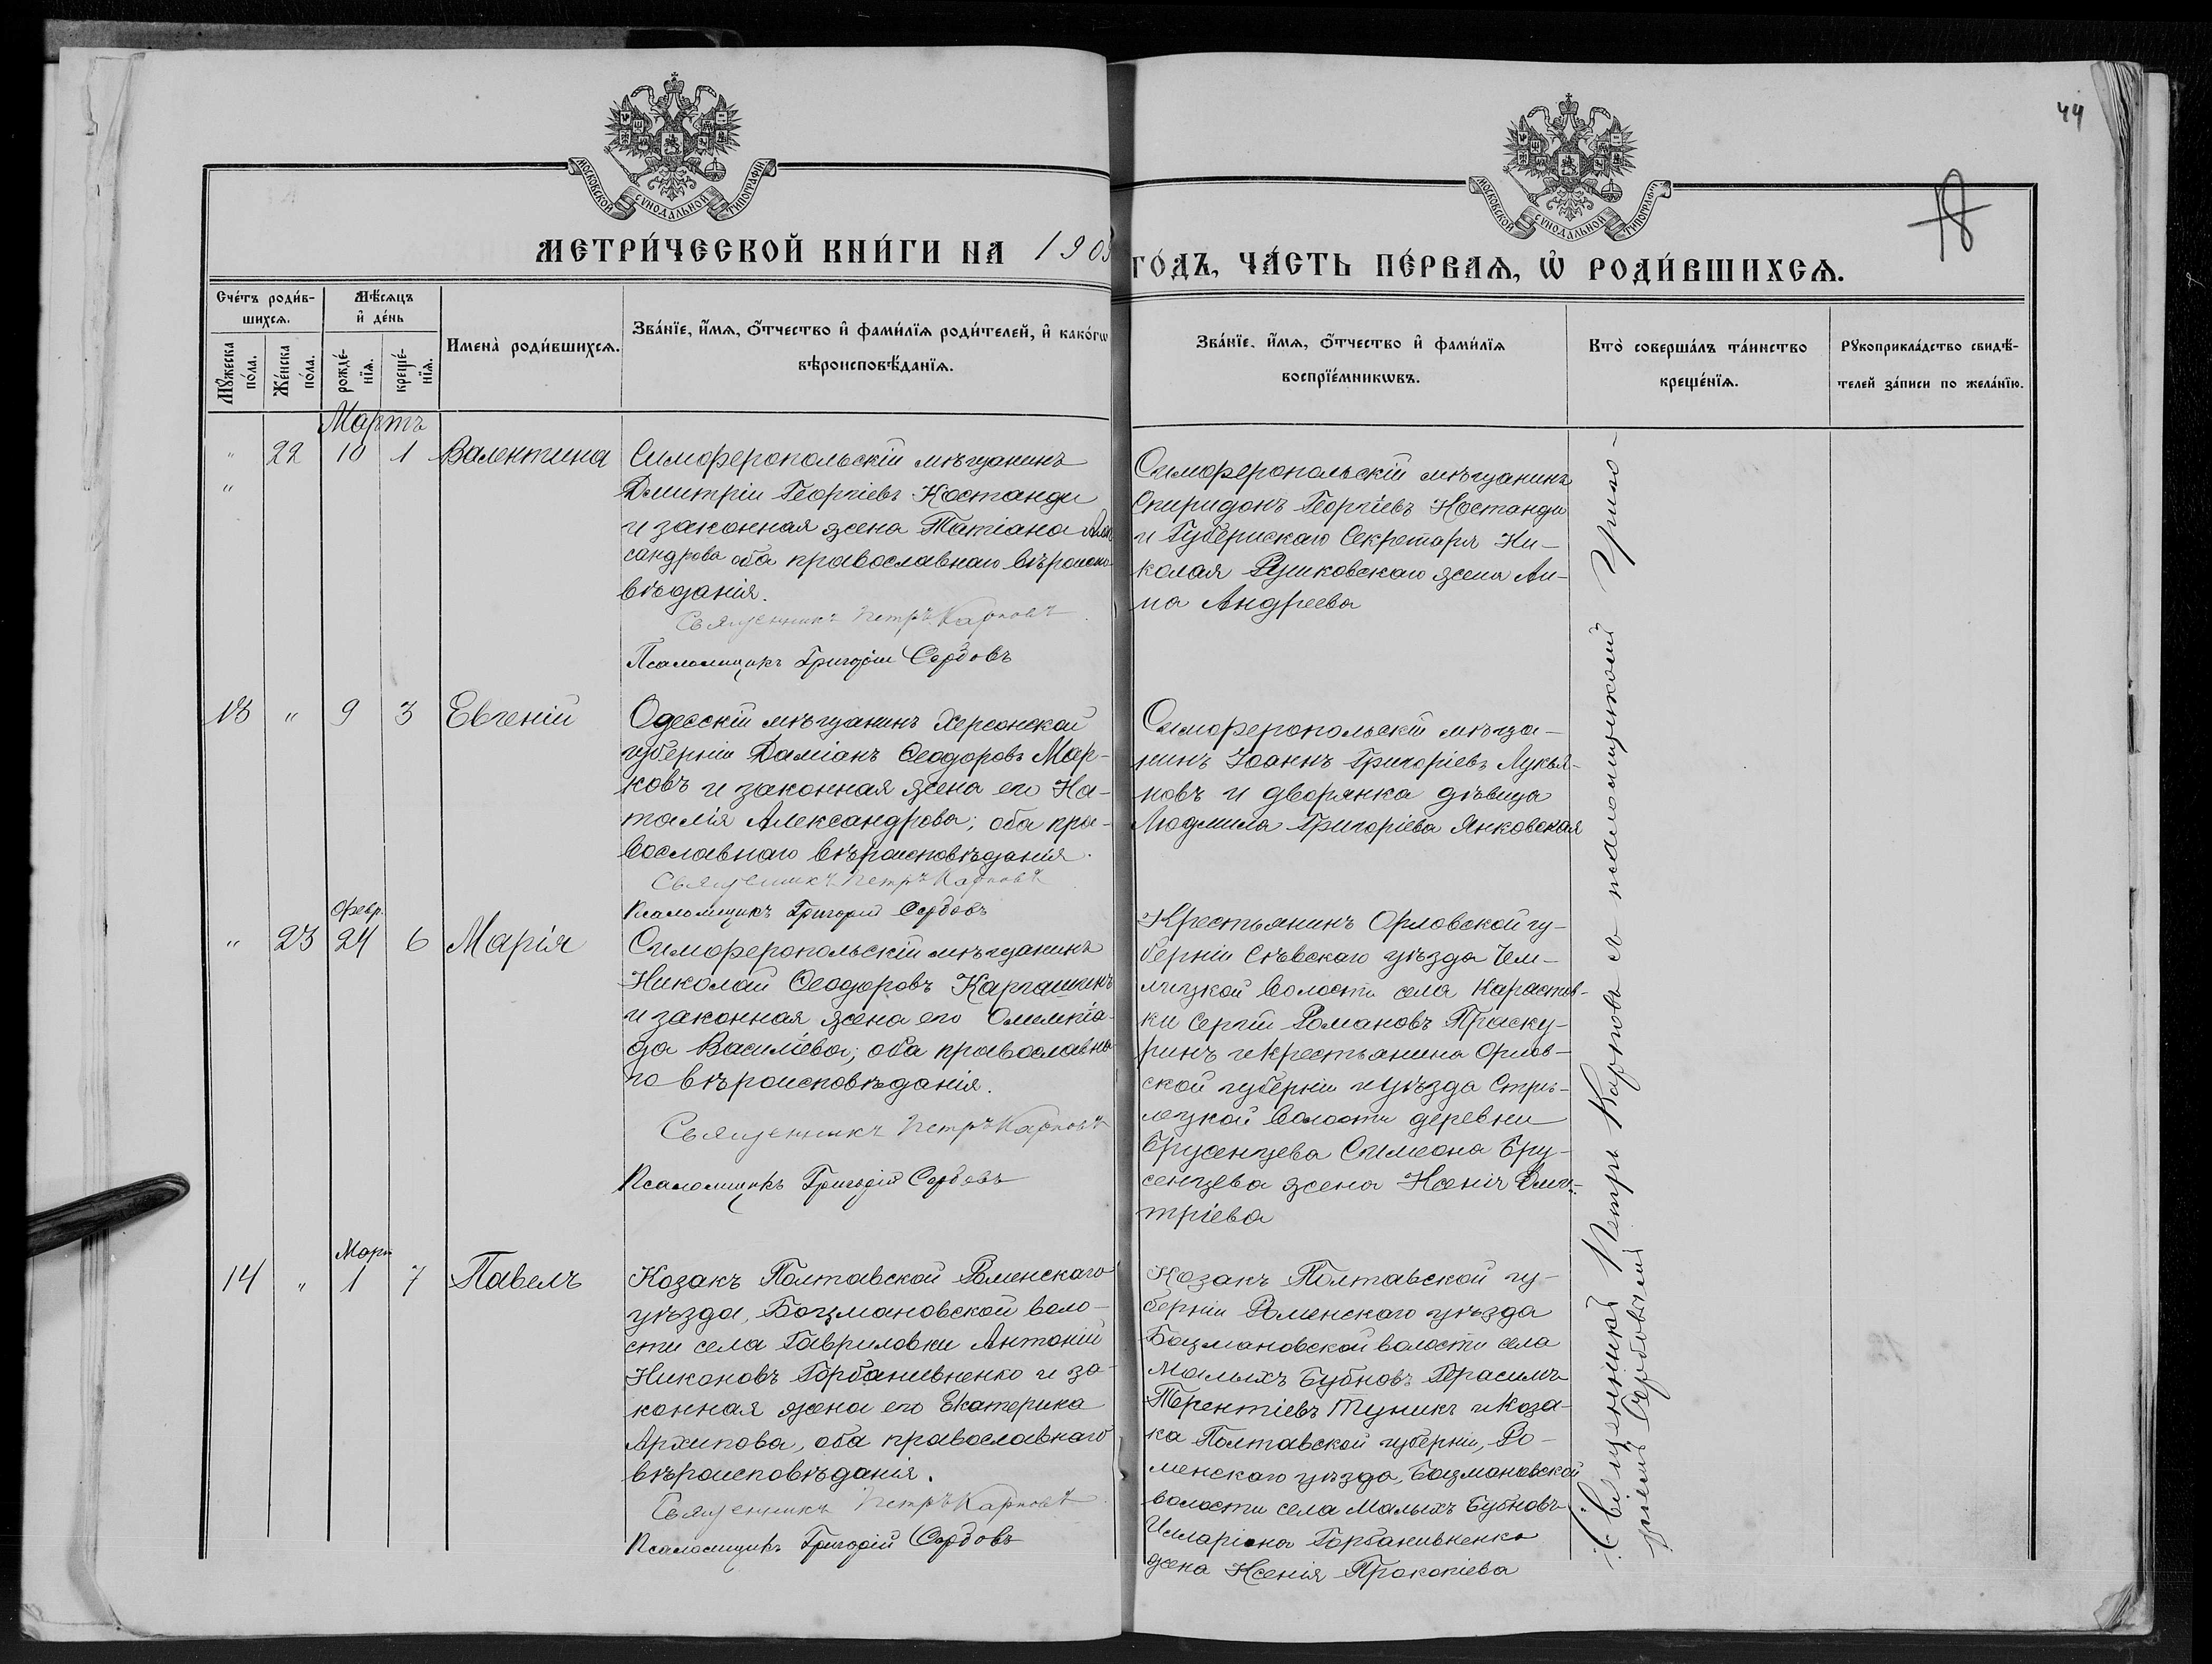 44
18
МОСКОВСКОЙ СѴНОДАЛЬНОЙ ТИПОГРАФІИ
МЕТРИ́ЧЕСКОЙ КНИ́ГИ НА 1903
МОСКОВСКОЙ СѴНОДАЛЬНОЙ ТИПОГРАФІИ
ГО́ДЪ, ЧА́СТЬ ПЕ́РВАѦ, Ѡ҆ РОДИ́ВШИХСѦ.
Сче́тъ роди́в-
шихсѧ.
Мѣ́сѧцъ
и҆ де́нь
Мꙋ́жеска
по́ла.
Же́нска
по́ла.
рожде́-
нїѧ.
креще́-
нїѧ.
Имена̀ роди́вшихсѧ.
Зва́нїе, и҆́мѧ, ѻ҆́тчество и҆ фами́лїѧ роди́телей, и҆ како́гѡ
вѣроисповѣ́данїѧ.
Зва́нїе, и҆́мѧ, ѻ҆́тчество и҆ фами́лїѧ
воспрїе́мникѡвъ.
Кто̀ соверша́лъ та́инство
креще́нїѧ.
Рꙋкоприкла́дство свидѣ́-
телей за́писи по жела́нїю.
Мартъ
" 22 10 1 Валентина
"
Симферопольскій мѣщанинъ
Дмитрій Георгіевъ Костанди
и законная жена Татіана Алек
сандрова оба православнаго вѣроиспо-
вѣданія.
Священникъ Петръ Карповъ
Псаломщикъ Григорій Сербовъ
Симферопольскій мѣщанинъ
Спиридонъ Георгіевъ Костанди
и Губернскаго Секретаря Ни-
колая Рушковскаго жена Ан-
на Андреева
13 " 9 3 Евгеній
Одесскій мѣщанинъ Херсонской
губерніи Даміанъ Ѳеодоровъ Мар-
ковъ и законная жена его На-
талія Александрова; оба пра-
вославнаго вѣроисповѣданія.
Священникъ Петръ Карповъ
Псаломщикъ Григорій Сербовъ
Симферопольскій мѣща-
нинъ Іоаннъ Григоріевъ Лукья-
новъ и дворянка дѣвица
Людмила Григоріева Янковская
Февр.
" 23 24 6 Марія
Симферопольскій мѣщанинъ
Николай Ѳеодоровъ Карпашкинъ
и законная жена его Олимпіа-
да Василіева; оба православна-
го вѣроисповѣданія.
Священникъ Петръ Карповъ
Псаломщикъ Григорій Сербовъ
Крестьянинъ Орловской гу-
берніи Сѣвскаго уѣзда Чем-
лыжской волости села
ки Сергій Романовъ Праску-
ринъ и крестьянина Орлов-
ской губерніи и уѣзда Стрѣ-
лецкой волости деревни
Брусенцева Симеона Бру-
сенцева жена Ксенія Дми-
тріева
Март
14 " 1 7 Павелъ
Козакъ Полтавской Роменскаго
уѣзда, Бацмановской воло-
сти села Гавриловки Антоній
Никоновъ Горбанивненко и за-
конная жена его Екатерина
Архипова, оба православнаго
вѣроисповѣданія.
Священникъ Петръ Карповъ
Псаломщикъ Григорій Сербовъ
Козакъ Полтавской гу-
берніи Роменскаго уѣзда
Бацмановской волости села
Малыхъ Бубновъ Герасимъ
Терентіевъ Туникъ и Коза-
ка Полтавской губерніи, Ро-
менскаго уѣзда, Бацмановской
волости села Малыхъ Бубновъ
Илларіона Горбанивненко
жена Ксенія Прокопіева
Священникъ Петръ Карповъ съ псаломщикомъ Григо-
ріемъ Сербовымъ